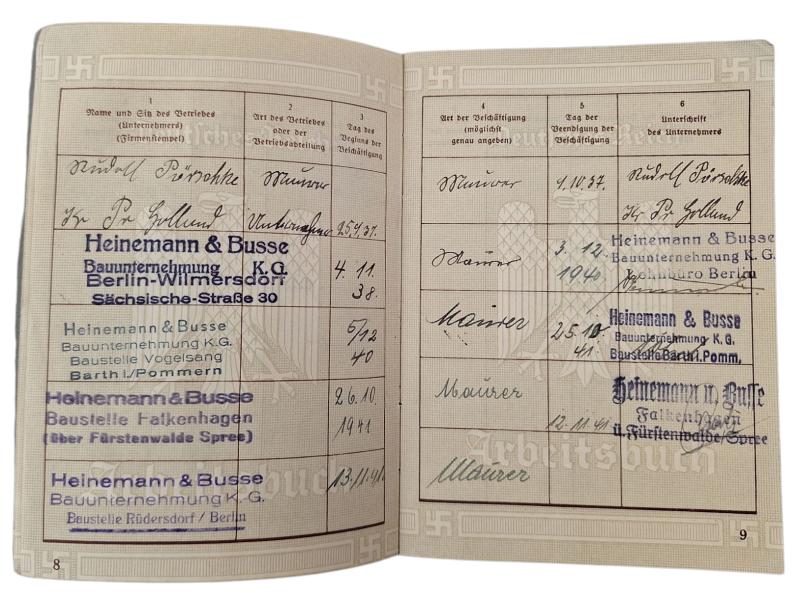 1
Name und Sitz des Betriebes
(Unternehmers)
(Firmenstempel)
2
Art des Betriebes
oder der
Betriebsabteilung
3
Tag des
Beginns der
Beschäftigung
Rudolf Pörschke
Maurer
Kr Pr Holland
Unternehmer
25.4.37.
Heinemann & Busse
Bauunternehmung K.G.
Berlin-Wilmersdorf
Sächsische-Straße 30
4. 11.
38.
Heinemann & Busse
Bauunternehmung K.G.
Baustelle Vogelsang
Barth i./Pommern
5/12
40
Heinemann & Busse
Baustelle Falkenhagen
(über Fürstenwalde Spree)
26.10.
1941
Heinemann & Busse
Bauunternehmung K.G.
Baustelle Rüdersdorf / Berlin
13.11.41.
Arbeitsbuch
8
4
Art der Beschäftigung
(möglichst
genau angeben)
5
Tag der
Beendigung der
Beschäftigung
6
Unterschrift
des Unternehmers
Deutsches Reich
Maurer
9.10.37.
Rudolf Pörschke
Kr Pr Holland
Maurer
3. 12.
1940
Heinemann & Busse
Bauunternehmung K.G.
Lohnbüro Berlin
Maurer
25.10
41.
Heinemann & Busse
Bauunternehmung K.G.
Baustelle Barth i. Pomm.
Maurer
12.11.41
Heinemann u. Busse
Falkenhagen
ü. Fürstenwalde/Spree
Maurer
Arbeitsbuch
9